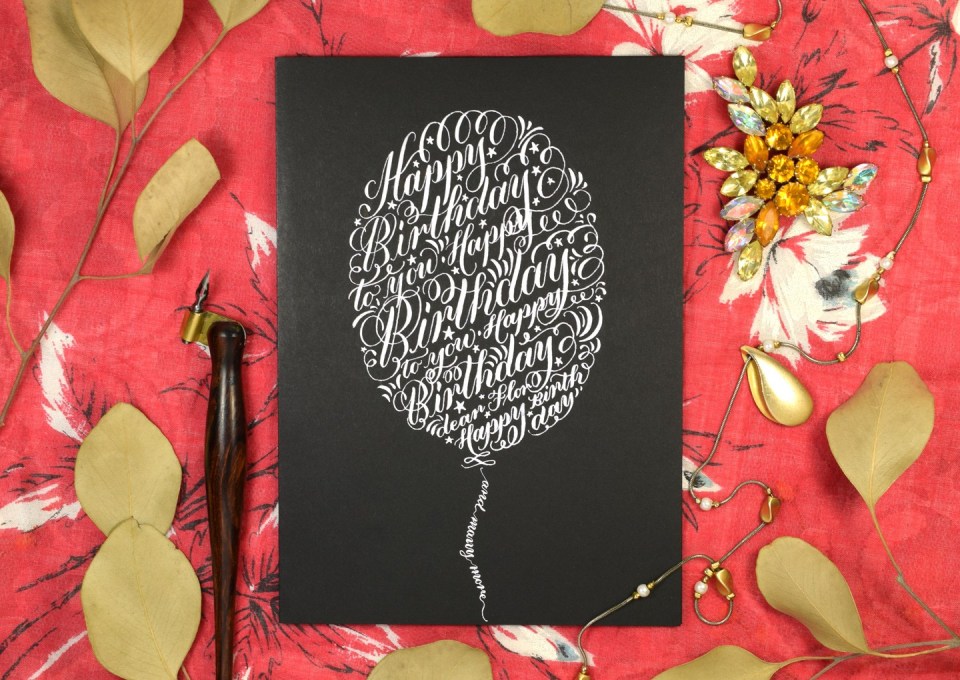 Happy
Birthday
to you. Happy
Birthday
to you. Happy
Birthday
dear Flor Birth
Happy day
and many more